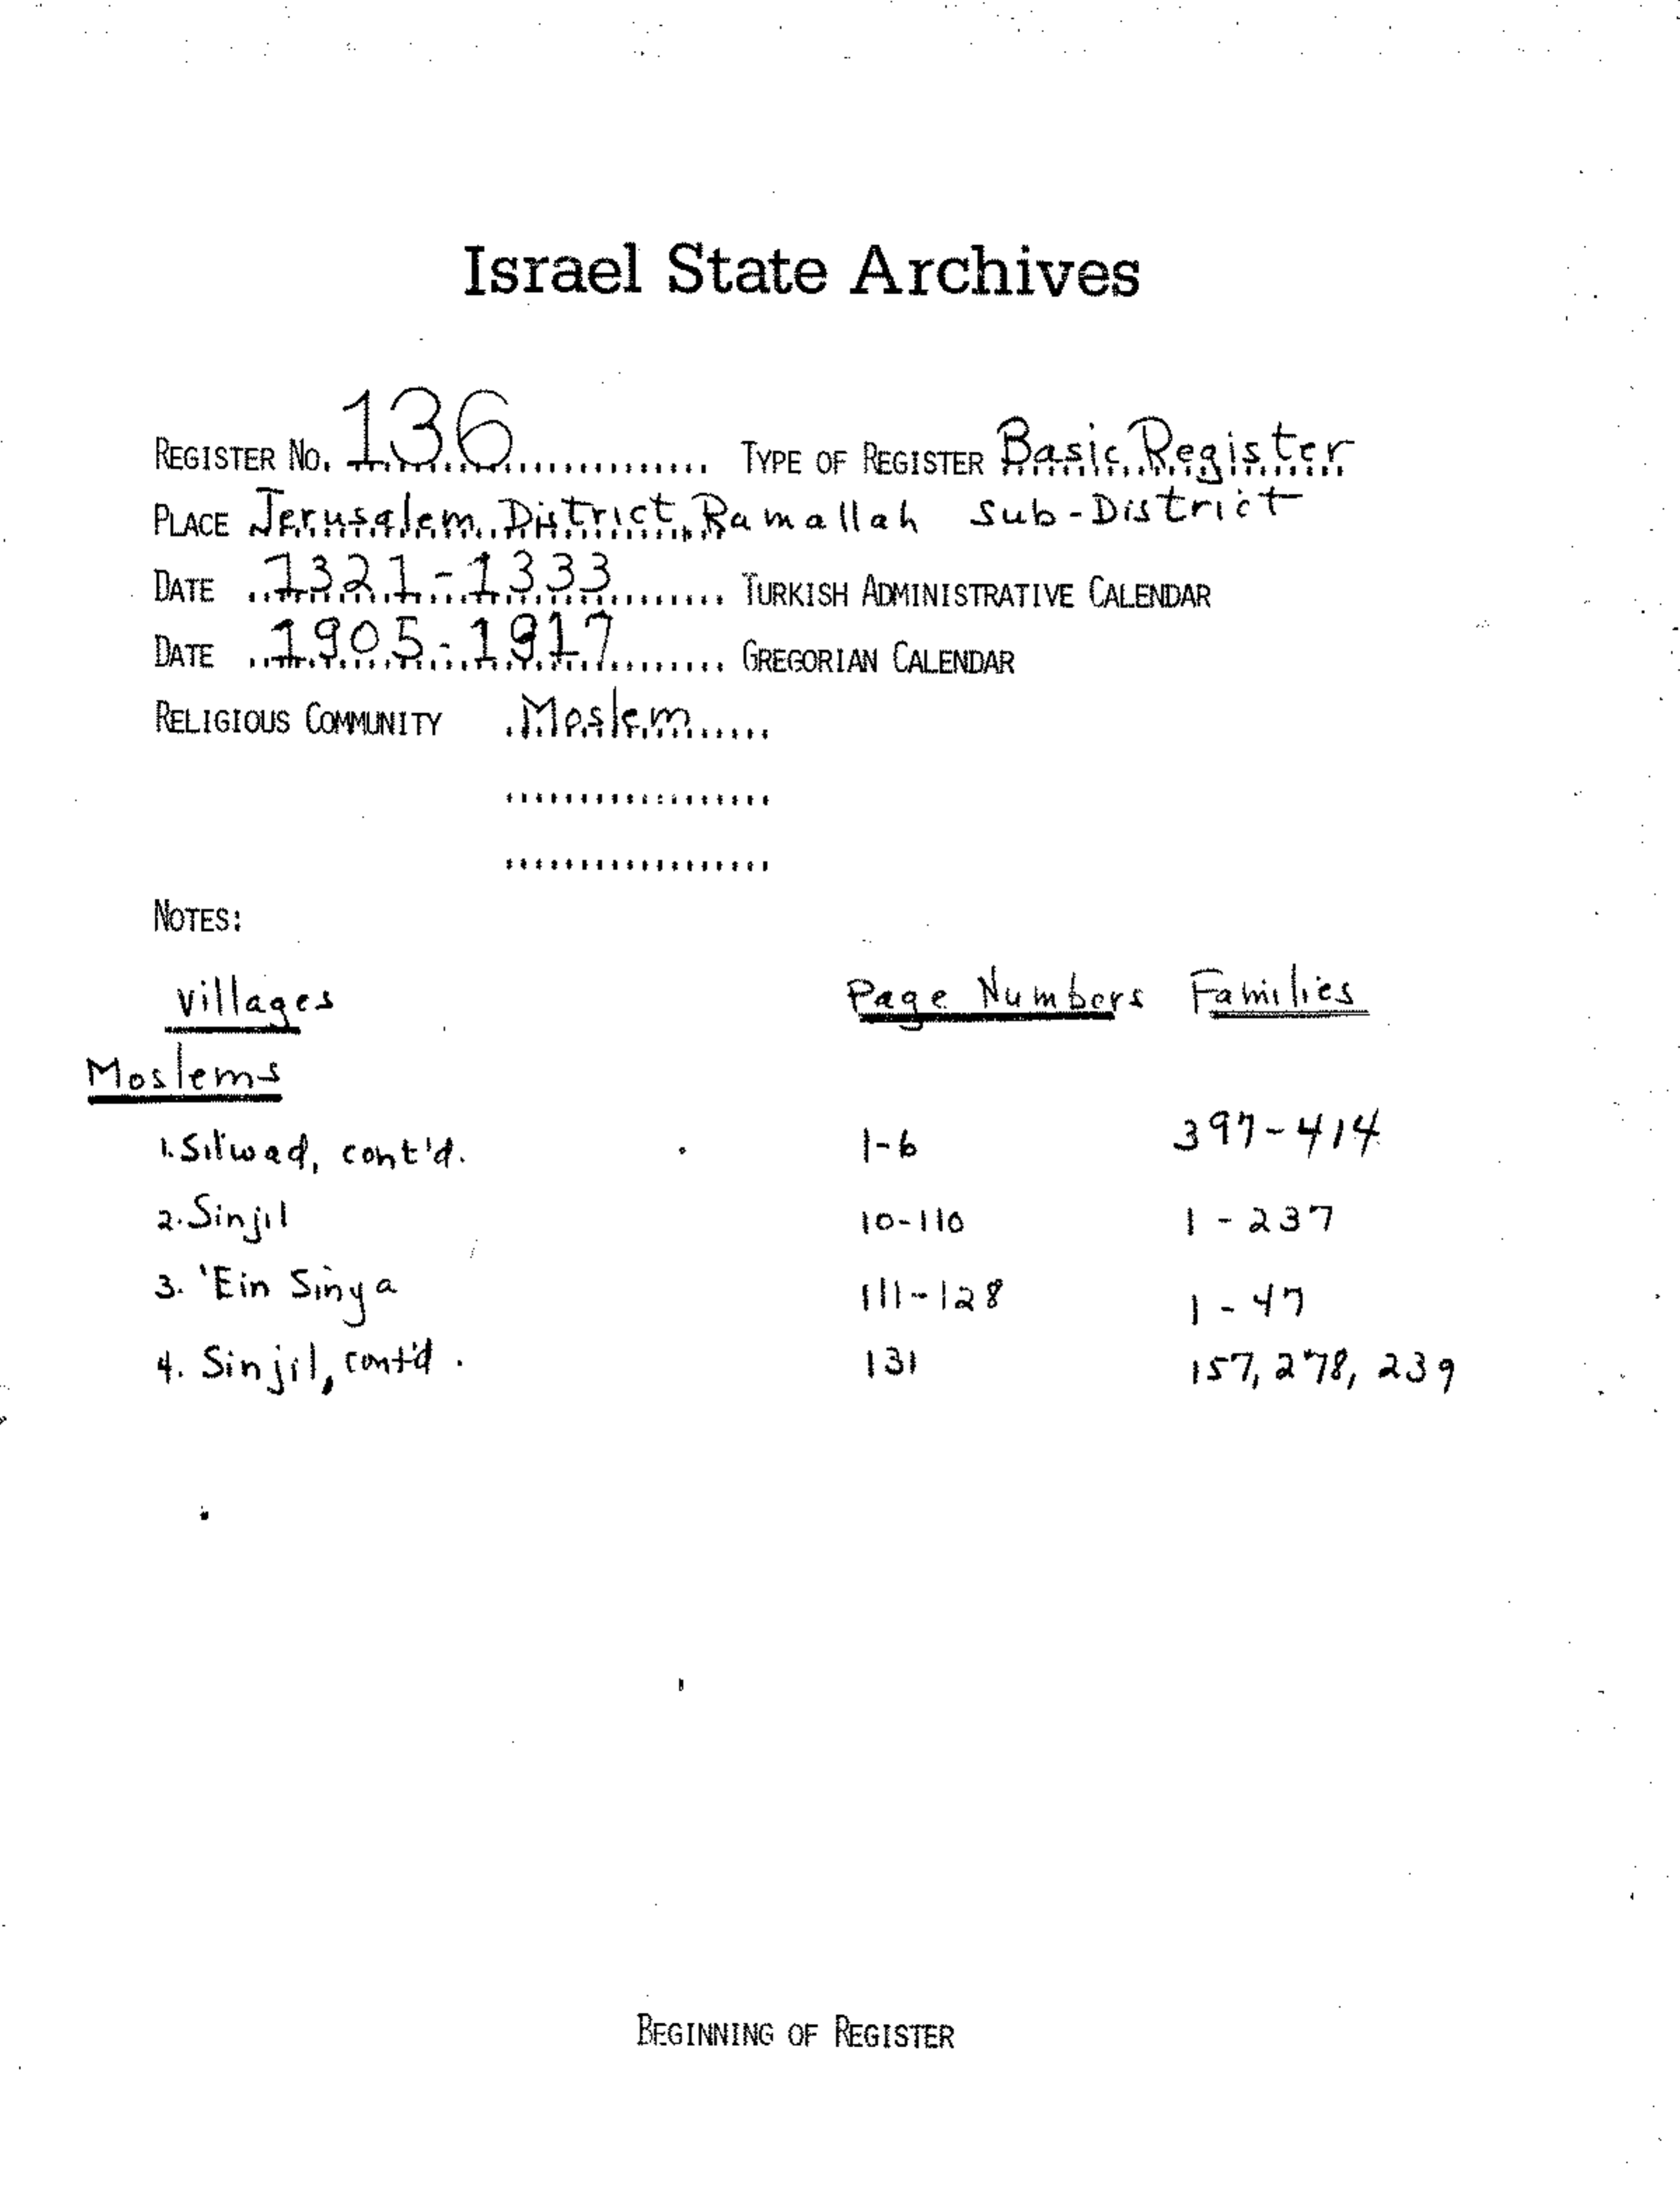 Israel State Archives
REGISTER NO. 136 TYPE OF REGISTER Basic Register
PLACE Jerusalem District, Ramallah Sub-District
DATE 1321-1333 TURKISH ADMINISTRATIVE CALENDAR
DATE 1905-1917 GREGORIAN CALENDAR
RELIGIOUS COMMUNITY Moslem
NOTES:
Villages Page Numbers Families
Moslems
1. Silwad, cont'd. 1-6 397-414
2. Sinjil 10-110 1-237
3. 'Ein Sinya 111-128 1-47
4. Sinjil, cont'd. 131 157, 278, 239
BEGINNING OF REGISTER